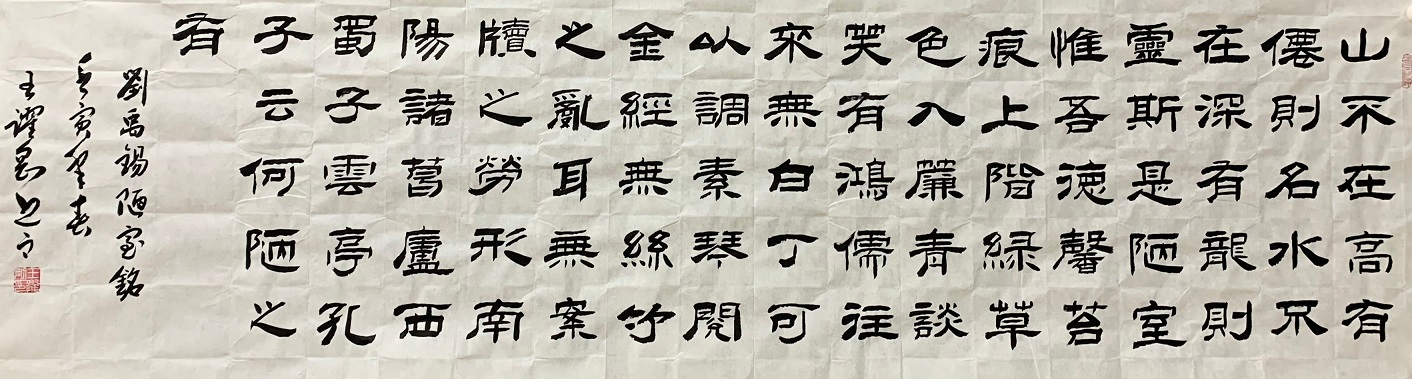 山不在高有
僊則名水不
在深有龍則
靈斯是陋室
惟吾德馨苔
痕上階綠草
色入簾青談
笑有鴻儒往
來無白丁可
以調素琴閱
金經無絲竹
之亂耳無案
牘之勞形南
陽諸葛廬西
蜀子雲亭孔
子云何陋之
有
劉禹錫陋室銘
壬寅春
王躍